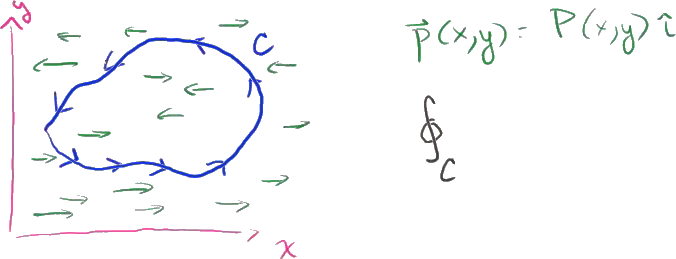 y
C
x
p⃗(x,y) = P(x,y) î
∮
C